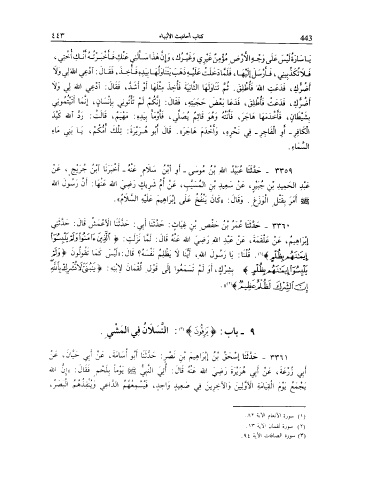 ٤٤٣ كتاب أحاديث الأنبياء 443
يا سارة ليس على وجه الأرض مؤمن غيري وغيرك، وإن هذا سألني عنك فأخبرته أنك أختي،
فلا تكذبيني، فأرسل إليها، فلما دخلت عليه ذهب يتناولها بيده فأخذ، فقال: ادعي الله لي ولا
أضرك، فدعت الله فأطلق، ثم تناولها الثانية فأخذ مثلها أو أشد، فقال: ادعي الله لي ولا
أضرك، فدعت فأطلق، فدعا بعض حجبته، فقال: إنكم لم تأتوني بإنسان، إنما أتيتموني
بشيطان، فأخدمها هاجر، فأتته وهو قائم يصلي، فأومأ بيده: مهيم، قالت: رد الله كيد
الكافر - أو الفاجر - في نحره، وأخدم هاجر. قال أبو هريرة: تلك أمكم، يا بني ماء
السماء.
٣٣٥٩ - حدثنا عبيد الله بن موسى - أو ابن سلام عنه - أخبرنا ابن جريج، عن
عبد الحميد بن جبير، عن سعيد بن المسيب، عن أم شريك رضي الله عنها: أن رسول الله
ﷺ أمر بقتل الوزغ. وقال: «كان ينفخ على إبراهيم عليه السلام».
٣٣٦٠ - حدثنا عمر بن حفص بن غياث: حدثنا أبي، حدثنا الأعمش قال: حدثني
إبراهيم، عن علقمة، عن عبد الله رضي الله عنه قال: لما نزلت: ﴿الذين آمنوا ولم يلبسوا
إيمانهم بظلم﴾(١). قلنا: يا رسول الله، أينا لا يظلم نفسه؟ قال: «ليس كما تقولون ﴿ولم
يلبسوا إيمانهم بظلم﴾ بشرك، أو لم تسمعوا إلى قول لقمان لابنه: ﴿يا بني لا تشرك بالله
إن الشرك لظلم عظيم﴾(٢)».
٩ - باب: ﴿يزفون﴾(٣): النسلان في المشي.
٣٣٦١ - حدثنا إسحق بن إبراهيم بن نصر: حدثنا أبو أسامة، عن أبي حيان، عن أبي
زرعة، عن أبي هريرة رضي الله عنه قال: أتي النبي ﷺ يوماً بلحم فقال: «إن الله
يجمع يوم القيامة الأولين والآخرين في صعيد واحد، فيسمعهم الداعي وينفذهم البصر،
(١) سورة الأنعام الآية ٨٢.
(٢) سورة لقمان الآية ١٣.
(٣) سورة الصافات الآية ٩٤.